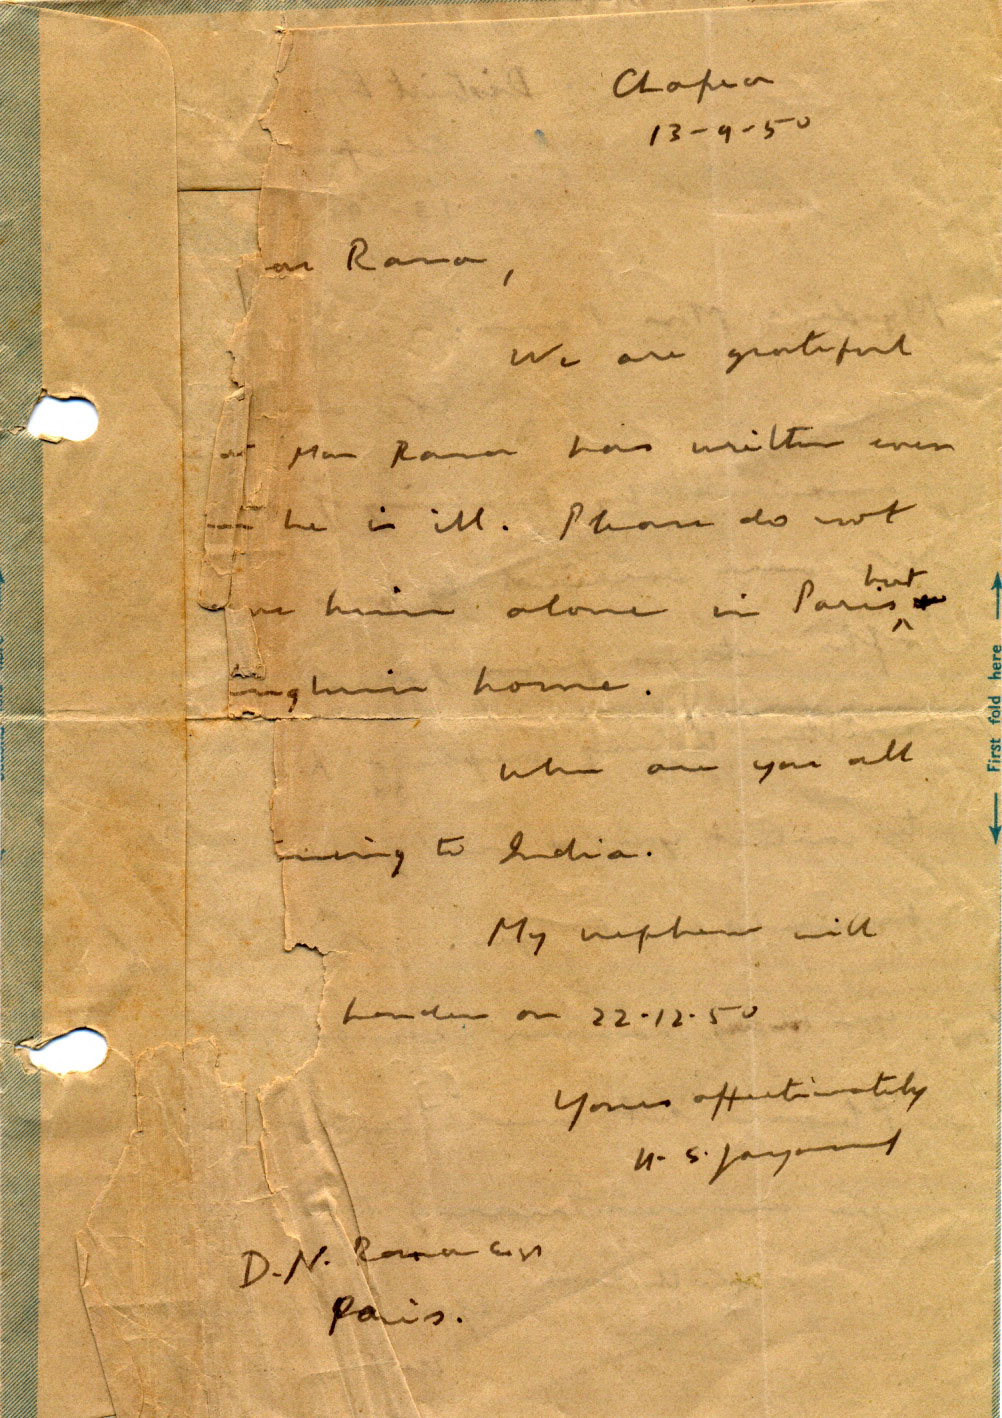 Chapra
13-9-50
ar Rana,
We are grateful
at Mon Rana has written even
he is ill. Please do not
ve him alone in Paris, but
ing him home.
When are you all
ming to India.
My nephew will
on 22-12-50
Yours affectionately
D. N. Rana Esqr
Paris.
First fold here